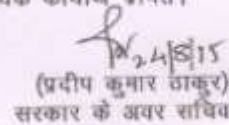 24/8/15
(प्रदीप कुमार ठाकुर)
सरकार के अवर सचिव